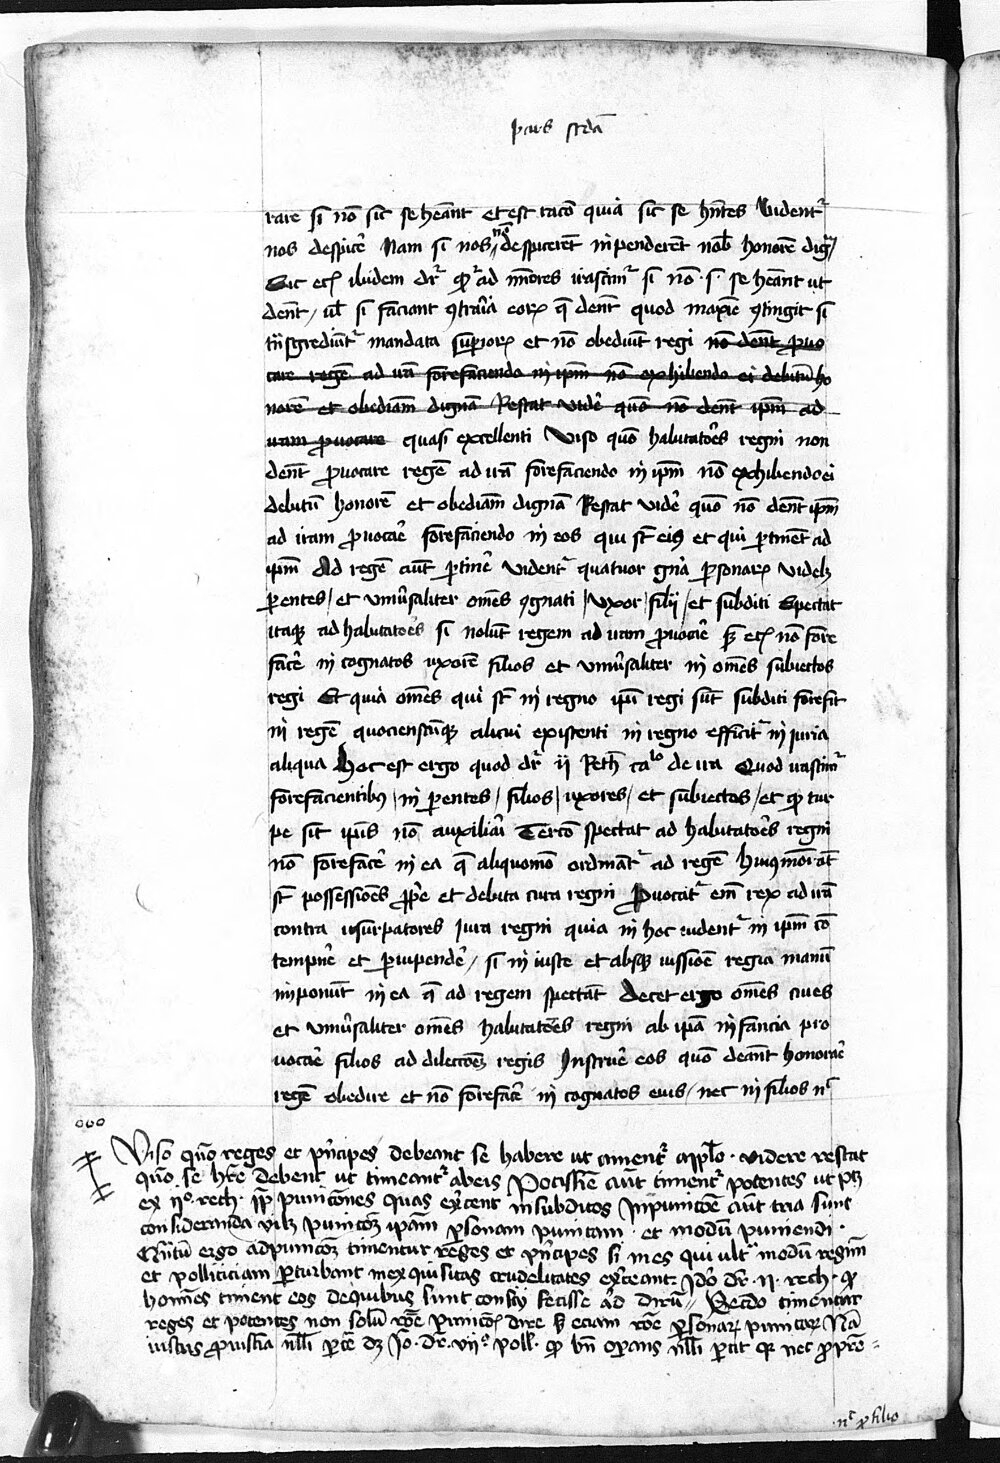 pars scda
rare si nō sic se heānt et est racō quia sic se hn̄tes vident᷑
nos despicē Nam si nos nō despicerēt inpenderēt nob̄ honorē dignū
Sic etꝫ ibidem dr̄ qꝫ ad mīores irascim᷑ si nō .s. se heānt ut
dent / ul̄ si faciant ꝯtraria eorꝫ q̄ dent quod maxīe ꝯtingit si
trāsgrediūt᷑ mandata supiorꝫ et nō obediūt regi nō dent ꝓuo
care regē ad irā forefaciendo in ipm̄ nō exhibendo ei debitū ho
norē et obediam̄ dignā Restat vidē quō nō dent ipm̄ ad
iram ꝓuocare quasi excellenti Viso quō habitatōes regni non
dent ꝓuocare regē ad irā forefaciendo in ipm̄ nō exhibendo ei
debitū honorē et obediam̄ dignā Restat vidē quō nō dent ipm̄
ad iram ꝓuocāe forefaciendo in eos qui st̄ eiꝰ et qui ꝑtinent ad
ipm̄ Ad regē aut̄ ꝑtinē vident᷑ quatuor gn̄a ꝑsonarꝫ videlꝫ
ꝑentes / et vniūsaliter om̄es ꝯgnati / vxor / filij / et subditi Spectat
itaqꝫ ad habitatōes si nolūt regem ad iram ꝓuocāe scd̄ etꝫ nō fore
facē in cognatos vxorē filios et vniūsaliter in om̄es subiectos
regi Et quia om̄es qui st̄ in regno ipi regi sūt subditi forefit
in regē quociensc̄uqꝫ alicui existenti in regno efficit᷑ iniuria
aliqua Hoc est ergo quod dr̄ ij Reth̄ ca᷑lo de ira Quod irascim᷑
forefacientibꝰ / in ꝑentes / filios / vxores / et subiectos / et qꝫ tur
pe sit ipīs nō auxiliāi Tercō spectat ad habitatōes regni
nō forefacē in ea q̄ aliquomō ordinānt᷑ ad regē Huiꝰmōi aūt
st̄ possessiōes ꝓpe et debita iura regni Prouocat᷑ em̄ rex ad irā
contra usurpatores iura regni quia in hoc vident᷑ in ipm̄ cō
tempnē et ꝑuipendē / si iniuste et absqꝫ iussiōe regia manū
inponūt in ea q̄ ad regem spectāt Decet ergo om̄es ciues
et vniūsaliter om̄es habitatōes regni ab ipā infancia pro
uocāe filios ad dilectōeꝫ regis Instruē eos quō deānt honorāe
regē obedire et nō forefacē in cognatos eius / nec in filios n᷑
ooo
Viso quō reges et pn̄cipes debeant se habere ut ament᷑ appl̄o · videre restat
quō se hr̄e debent ut timeant᷑ ab eis Potissīe aut̄ timent᷑ potentes ut ptꝫ
ex ijº · reth · ꝓp puniciōnes quas exꝰcent in subditos In punicōe aut̄ tria sunt
consideranda vidlꝫ punicōꝫ ipam ꝑsonam punitam · et modū puniendi ·
Qn̄tū ergo ad punicōꝫ timentur reges et pn̄cipes si in es qui ult᷑ modū regim̄
et polliticiam ꝑturbant inexquisitas crudelitates exꝰceant · Ido dr̄ · ij · reth · qꝫ
homīes timent eos de quibus sunt conscij fecisse a̓d dirū · / Secdo timentur
reges et potentes non solū rōe punicōꝫ dire sꝫ eciam rōe ꝑsonarꝫ punitarꝫ Nā
iustus ꝓ iusticia null̄i ꝑce dꝫ Io · dr̄ · vijº · poll · qꝫ bn̄ oꝑans null̄i ꝑcit qꝫ nec ꝓ pre᷑ =
n᷑ ꝓ filio